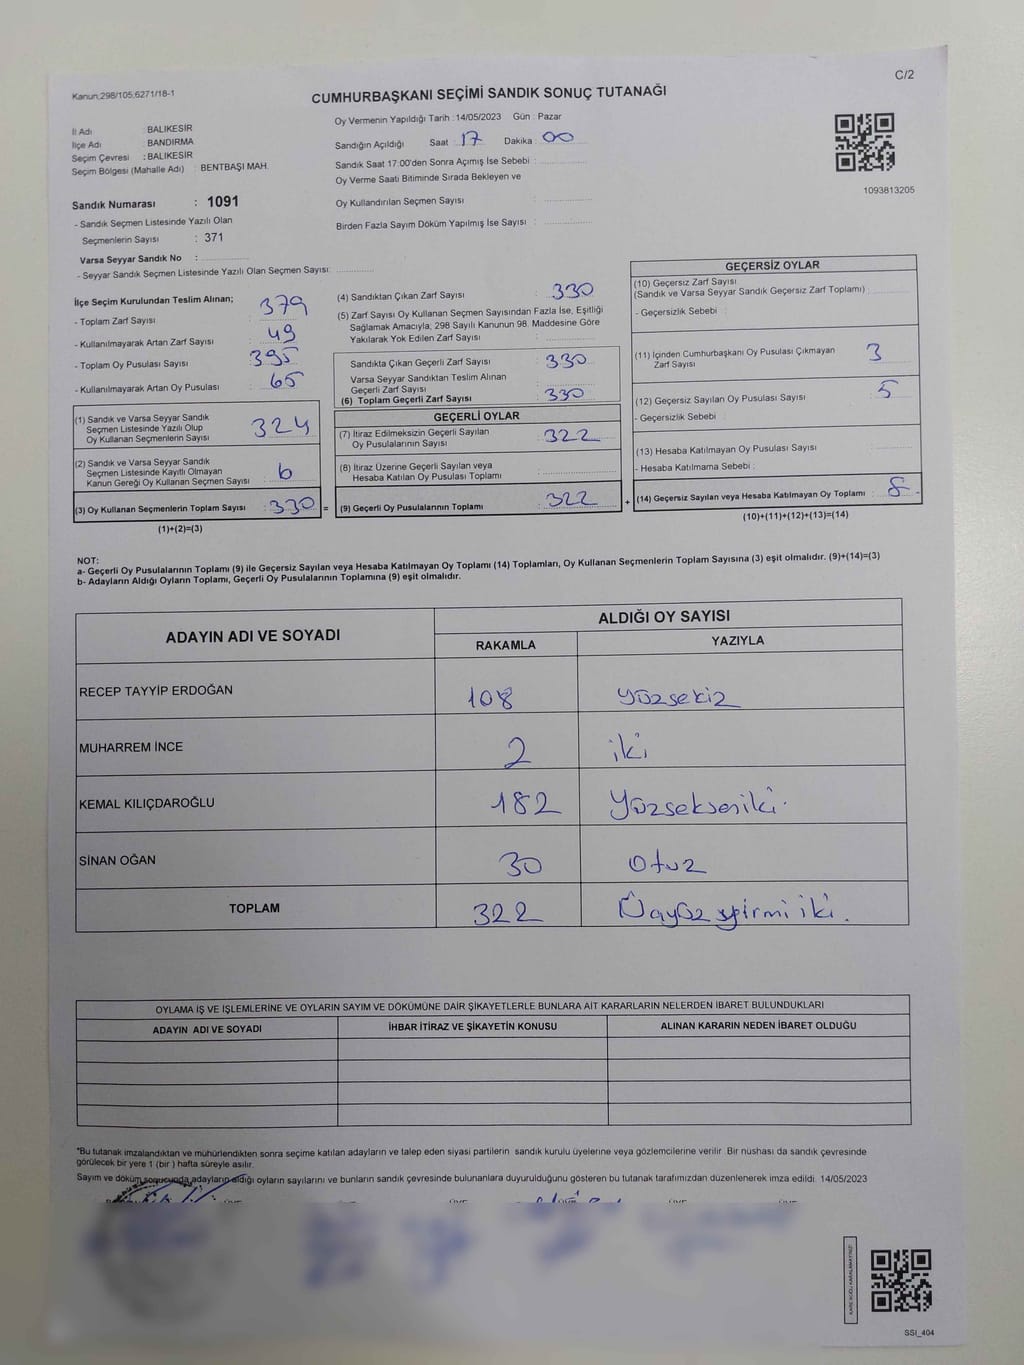 C/2
Kanun;298/105,6271/18-1
CUMHURBAŞKANI SEÇİMİ SANDIK SONUÇ TUTANAĞI
İl Adı : BALIKESİR
İlçe Adı : BANDIRMA
Seçim Çevresi : BALIKESİR
Seçim Bölgesi (Mahalle Adı) : BENTBAŞI MAH.
Sandık Numarası : 1091
- Sandık Seçmen Listesinde Yazılı Olan
Seçmenlerin Sayısı : 371
Varsa Seyyar Sandık No :
- Seyyar Sandık Seçmen Listesinde Yazılı Olan Seçmen Sayısı:
Oy Vermenin Yapıldığı Tarih :14/05/2023 Gün : Pazar
Sandığın Açıldığı Saat : 17 Dakika : 00
Sandık Saat 17.00'den Sonra Açımış İse Sebebi :
Oy Verme Saati Bitiminde Sırada Bekleyen ve
Oy Kullandırılan Seçmen Sayısı :
Birden Fazla Sayım Döküm Yapılmış İse Sayısı :
1093813205
İlçe Seçim Kurulundan Teslim Alınan;
- Toplam Zarf Sayısı : 379
- Kullanılmayarak Artan Zarf Sayısı : 49
- Toplam Oy Pusulası Sayısı : 395
- Kullanılmayarak Artan Oy Pusulası : 65
(1) Sandık ve Varsa Seyyar Sandık
Seçmen Listesinde Yazılı Olup
Oy Kullanan Seçmenlerin Sayısı : 324
(2) Sandık ve Varsa Seyyar Sandık
Seçmen Listesinde Kayıtlı Olmayan
Kanun Gereği Oy Kullanan Seçmen Sayısı : 6
(3) Oy Kullanan Seçmenlerin Toplam Sayısı : 330 =
(1)+(2)=(3)
(4) Sandıktan Çıkan Zarf Sayısı : 330
(5) Zarf Sayısı Oy Kullanan Seçmen Sayısından Fazla İse, Eşitliği
Sağlamak Amacıyla; 298 Sayılı Kanunun 98. Maddesine Göre
Yakılarak Yok Edilen Zarf Sayısı :
Sandıkta Çıkan Geçerli Zarf Sayısı : 330
Varsa Seyyar Sandıktan Teslim Alınan
Geçerli Zarf Sayısı :
(6) Toplam Geçerli Zarf Sayısı : 330
GEÇERLİ OYLAR
(7) İtiraz Edilmeksizin Geçerli Sayılan
Oy Pusulalarının Sayısı : 322
(8) İtiraz Üzerine Geçerli Sayılan veya
Hesaba Katılan Oy Pusulası Toplamı :
(9) Geçerli Oy Pusulalarının Toplamı : 322 +
GEÇERSİZ OYLAR
(10) Geçersiz Zarf Sayısı
(Sandık ve Varsa Seyyar Sandık Geçersiz Zarf Toplamı) :
- Geçersizlik Sebebi :
(11) İçinden Cumhurbaşkanı Oy Pusulası Çıkmayan
Zarf Sayısı : 3
(12) Geçersiz Sayılan Oy Pusulası Sayısı : 5
- Geçersizlik Sebebi :
(13) Hesaba Katılmayan Oy Pusulası Sayısı :
- Hesaba Katılmama Sebebi :
(14) Geçersiz Sayılan veya Hesaba Katılmayan Oy Toplamı : 8
(10)+(11)+(12)+(13)=(14)
NOT:
a- Geçerli Oy Pusulalarının Toplamı (9) ile Geçersiz Sayılan veya Hesaba Katılmayan Oy Toplamı (14) Toplamları, Oy Kullanan Seçmenlerin Toplam Sayısına (3) eşit olmalıdır. (9)+(14)=(3)
b- Adayların Aldığı Oyların Toplamı, Geçerli Oy Pusulalarının Toplamına (9) eşit olmalıdır.
ADAYIN ADI VE SOYADI
ALDIĞI OY SAYISI
RAKAMLA YAZIYLA
RECEP TAYYİP ERDOĞAN 108 Yüzsekiz
MUHARREM İNCE 2 iki
KEMAL KILIÇDAROĞLU 182 Yüzsekseniki.
SİNAN OĞAN 30 Otuz
TOPLAM 322 Üçyüz yirmi iki.
OYLAMA İŞ VE İŞLEMLERİNE VE OYLARIN SAYIM VE DÖKÜMÜNE DAİR ŞİKAYETLERLE BUNLARA AİT KARARLARIN NELERDEN İBARET BULUNDUKLARI
ADAYIN ADI VE SOYADI İHBAR İTİRAZ VE ŞİKAYETİN KONUSU ALINAN KARARIN NEDEN İBARET OLDUĞU
*Bu tutanak imzalandıktan ve mühürlendikten sonra seçime katılan adayların ve talep eden siyasi partilerin sandık kurulu üyelerine veya gözlemcilerine verilir. Bir nüshası da sandık çevresinde
görülecek bir yere 1 (bir ) hafta süreyle asılır.
Sayım ve döküm sonucunda adayların aldığı oyların sayılarını ve bunların sandık çevresinde bulunanlara duyurulduğunu gösteren bu tutanak tarafımızdan düzenlenerek imza edildi. 14/05/2023
KARE KODU KARALAMAYINIZ!
SSI_404